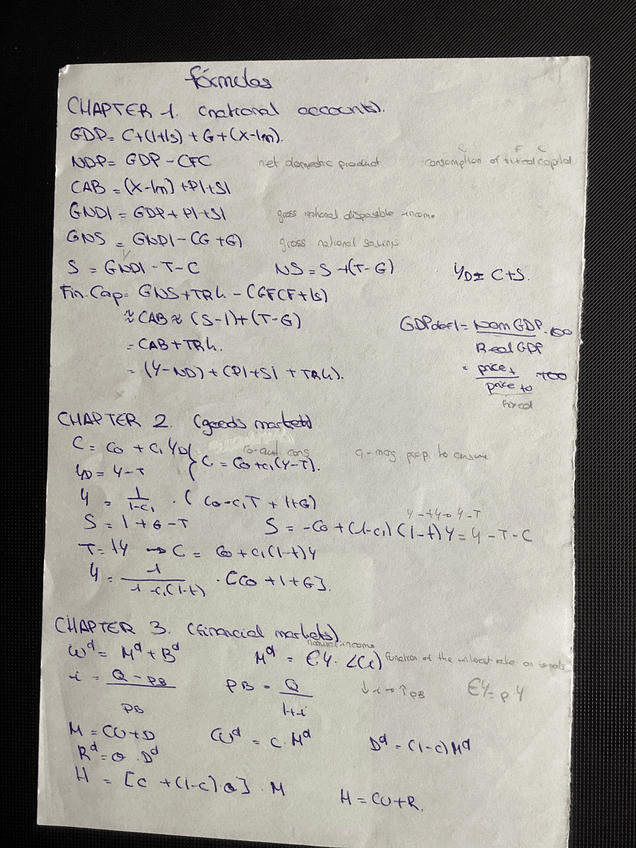 fórmulas
CHAPTER 1. (national accounts).
GDP = C+(I+Is) + G + (X-Im).
NDP = GDP - CFC net domestic product consumption of fixed capital
CAB = (X-Im) + PI + SI
GNDI = GDP + PI + SI gross national disposable income
GNS = GNDI - (C+G) gross national savings
S = GNDI - T - C NS = S + (T-G) YD = C+S.
Fin. Cap = GNS + TRk - (GFCF + Is)
≈ CAB ≈ (S-I) + (T-G) GDPdef = Nom GDP / Real GDP . 100
= CAB + TRk. = price t / price t0 . 100
= (Y-ND) + (PI + SI + TRk). fixed
CHAPTER 2. (goods market)
C = C0 + C1 YD } C = C0 + C1 (Y-T). C0 - aut. cons C1 - mag prop. to consume
YD = Y-T
Y = 1 / 1-C1 . ( C0 - C1T + I+G)
S = I + G - T S = -C0 + (1-C1) (1-t) Y = Y - T - C
T = tY → C = C0 + C1 (1-t) Y
Y = 1 / 1-C1(1-t) . [C0 + I + G].
CHAPTER 3. (financial markets)
Wᵈ = Mᵈ + Bᵈ Mᵈ = €Y. L(i) function of the interest rate on
i = Q - PB / PB PB = Q / 1+i ↓ i → ↑ PB €Y = P.Y
M = CU + D CUᵈ = C. Mᵈ Dᵈ = (1-c) Mᵈ
Rᵈ = θ . Dᵈ
H = [C + (1-c) θ] . M H = CU + R.